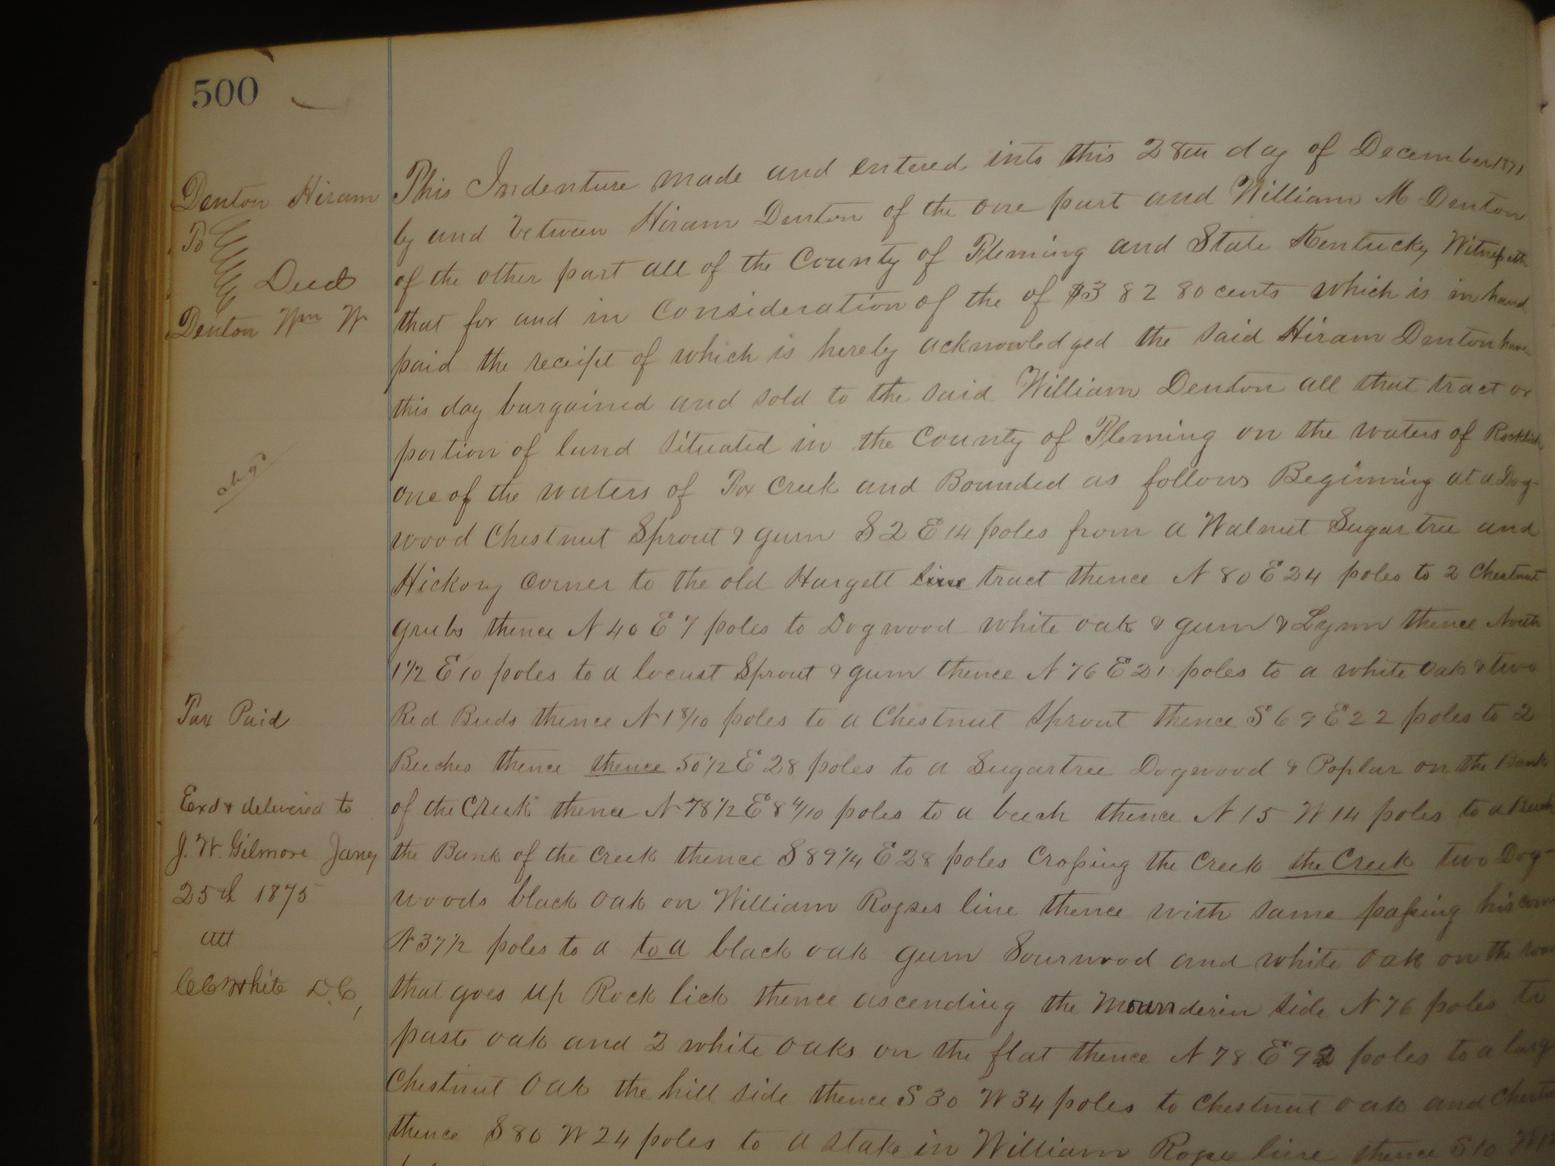 500
Denton Hiram
To
Deed
Denton Wm W
Tax Paid
Exd & delivered to
J. W. Gilmore Jany
25th 1875
att
CC White D.C,
This Indenture made and entered into this 28th day of December 1871
by and between Hiram Denton of the one part and William M Denton
of the other part all of the County of Fleming and State Kentucky Witnesseth
that for and in Consideration of the of $3 82 80 cents which is in hand
paid the receipt of which is hereby acknowledged the said Hiram Denton have
this day bargained and sold to the said William Denton all that tract or
portion of land situated in the County of Fleming on the waters of Rocklick
one of the waters of Fox Creek and Bounded as follows Beginning at a Dog-
wood Chestnut Sprout & gum S 2 E 14 poles from a Walnut Sugartree and
Hickory Corner to the old Hargett line tract thence N 80 E 24 poles to 2 Chestnut
grubs thence N 40 E 7 poles to Dogwood white oak & gum & Lynn thence North
1 1/2 E 10 poles to a locust Sprout & gum thence N 76 E 21 poles to a white oak & two
Red Buds thence N 1 8/10 poles to a Chestnut Sprout thence S 69 E 22 poles to 2
Beeches thence thence 50 1/2 E 28 poles to a Sugartree Dogwood & Poplar on the Bank
of the Creek thence N 78 1/2 E 8 4/10 poles to a beech thence N 15 W 14 poles to a Beech
the Bank of the Creek thence S 89 1/4 E 28 poles Crossing the Creek the Creek two Dog-
woods black oak on William Rogses line thence with same passing his corn
N 37 1/2 poles to a to a black oak gum Sourwood and white oak on the
that goes up Rock lick thence ascending the Mounderin side N 76 poles to
paste oak and 2 white oaks on the flat thence N 78 E 92 poles to a larg
Chestnut Oak the hill side thence S 30 W 34 poles to Chestnut oak and
thence S 80 W 24 poles to a stake in William line thence S 10 W